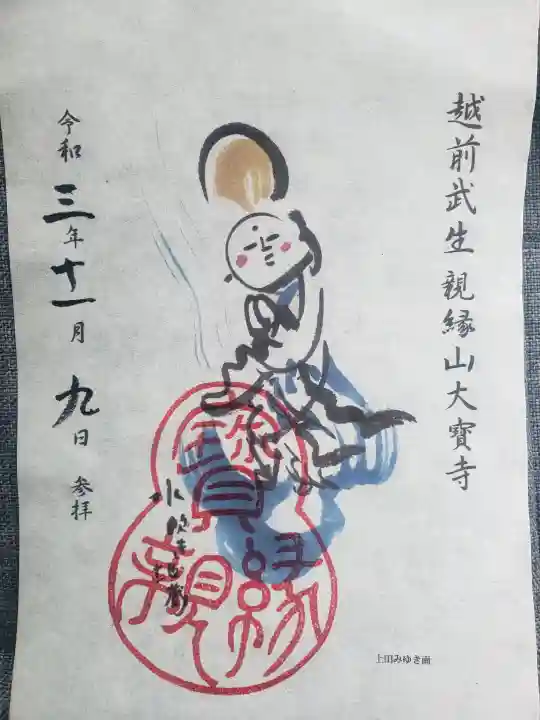 越前武生親縁山大寳寺
令和三年十一月九日 参拝
親縁
上田みゆき画